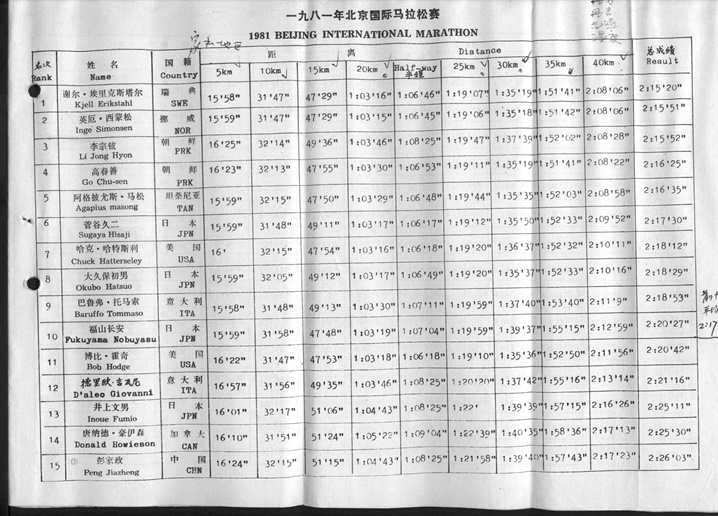 一九八一年北京国际马拉松赛
1981 BEIJING INTERNATIONAL MARATHON
名次 姓名 国籍 距离 Distance 总成绩
Rank Name Country 5km 10km 15km 20km Half-way 半程 25km 30km 35km 40km Result
1 谢尔·埃里克斯塔尔 瑞典 15'58" 31'47" 47'29" 1:03'16" 1:06'46" 1:19'07" 1:35'19" 1:51'41" 2:08'06" 2:15'20"
Kjell Erikstahl SWE
2 英厄·西蒙松 挪威 15'59" 31'47" 47'29" 1:03'15" 1:06'45" 1:19'06" 1:35'18" 1:51'42" 2:08'06" 2:15'51"
Inge Simonsen NOR
3 李宗铉 朝鲜 16'25" 32'14" 49'36" 1:03'46" 1:08'25" 1:19'47" 1:37'39" 1:52'02" 2:08'28" 2:15'52"
Li Jong Hyon PRK
4 高春善 朝鲜 16'23" 32'13" 47'55" 1:03'30" 1:06'53" 1:19'11" 1:35'19" 1:51'41" 2:08'22" 2:16'25"
Go Chu-sen PRK
5 阿格披尤斯·马松 坦桑尼亚 15'59" 32'15" 47'50" 1:03'29" 1:06'48" 1:19'44" 1:35'35" 1:52'03" 2:08'58" 2:16'35"
Agapius masong TAN
6 菅谷久二 日本 15'59" 31'48" 49'11" 1:03'17" 1:06'17" 1:19'12" 1:35'50" 1:52'33" 2:09'52" 2:17'30"
Sugaya Hisaji JPN
7 哈克·哈特斯利 美国 16' 32'15" 47'54" 1:03'16" 1:06'18" 1:19'20" 1:36'37" 1:52'32" 2:10'11" 2:18'12"
Chuck Hatterseley USA
8 大久保初男 日本 15'59" 32'05" 49'12" 1:03'17" 1:06'49" 1:19'20" 1:35'37" 1:52'33" 2:10'16" 2:18'29"
Okubo Hatsuo JPN
9 巴鲁弗·托马索 意大利 15'58" 31'48" 49'13" 1:03'30" 1:07'11" 1:19'59" 1:37'40" 1:53'40" 2:11'9" 2:18'53"
Baruffo Tommaso ITA
10 福山长安 日本 15'59" 31'58" 47'48" 1:03'19" 1:07'04" 1:19'59" 1:39'37" 1:55'15" 2:12'59" 2:20'27"
Fukuyama Nobuyasu JPN
11 博比·霍奇 美国 16'22" 31'47" 47'53" 1:03'18" 1:06'18" 1:19'10" 1:35'36" 1:52'50" 2:11'56" 2:20'42"
Bob Hodge USA
12 意大利 16'57" 31'56" 49'35" 1:03'46" 1:08'25" 1:20'20" 1:37'42" 1:55'16" 2:13'14" 2:21'16"
D'aleo Giovanni ITA
13 井上文男 日本 16'01" 32'17" 51'06" 1:04'43" 1:08'25" 1:22' 1:39'39" 1:57'15" 2:16'26" 2:25'11"
Inoue Fumio JPN
14 唐纳德·豪伊森 加拿大 16'10" 31'51" 51'24" 1:05'22" 1:09'04" 1:22'39" 1:40'35" 1:58'36" 2:17'13" 2:25'30"
Donald Howieson CAN
15 彭家政 中国 16'24" 32'15" 51'15" 1:04'43" 1:08'25" 1:21'58" 1:39'40" 1:57'43" 2:17'23" 2:26'03"
Peng Jiazheng CHN